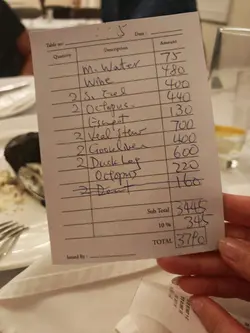 5
Table no: Date :
Quantity Description Amount
M. Water 75
Wine 480
2 S. Eel 400
2 Octopus 440
130
2 Veal Stew 700
2 400
2 Duck Leg 600
Octopus 220
2 160
Sub Total 3445
10 % 345
TOTAL 3790
Issued By :